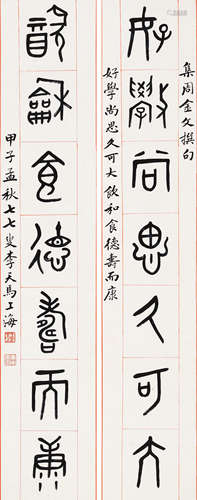 集周金文撰句
好學尚思久可大
好學尚思久可大飲和食德壽而康
飲和食德壽而康
甲子孟秋七七叟李天馬上海